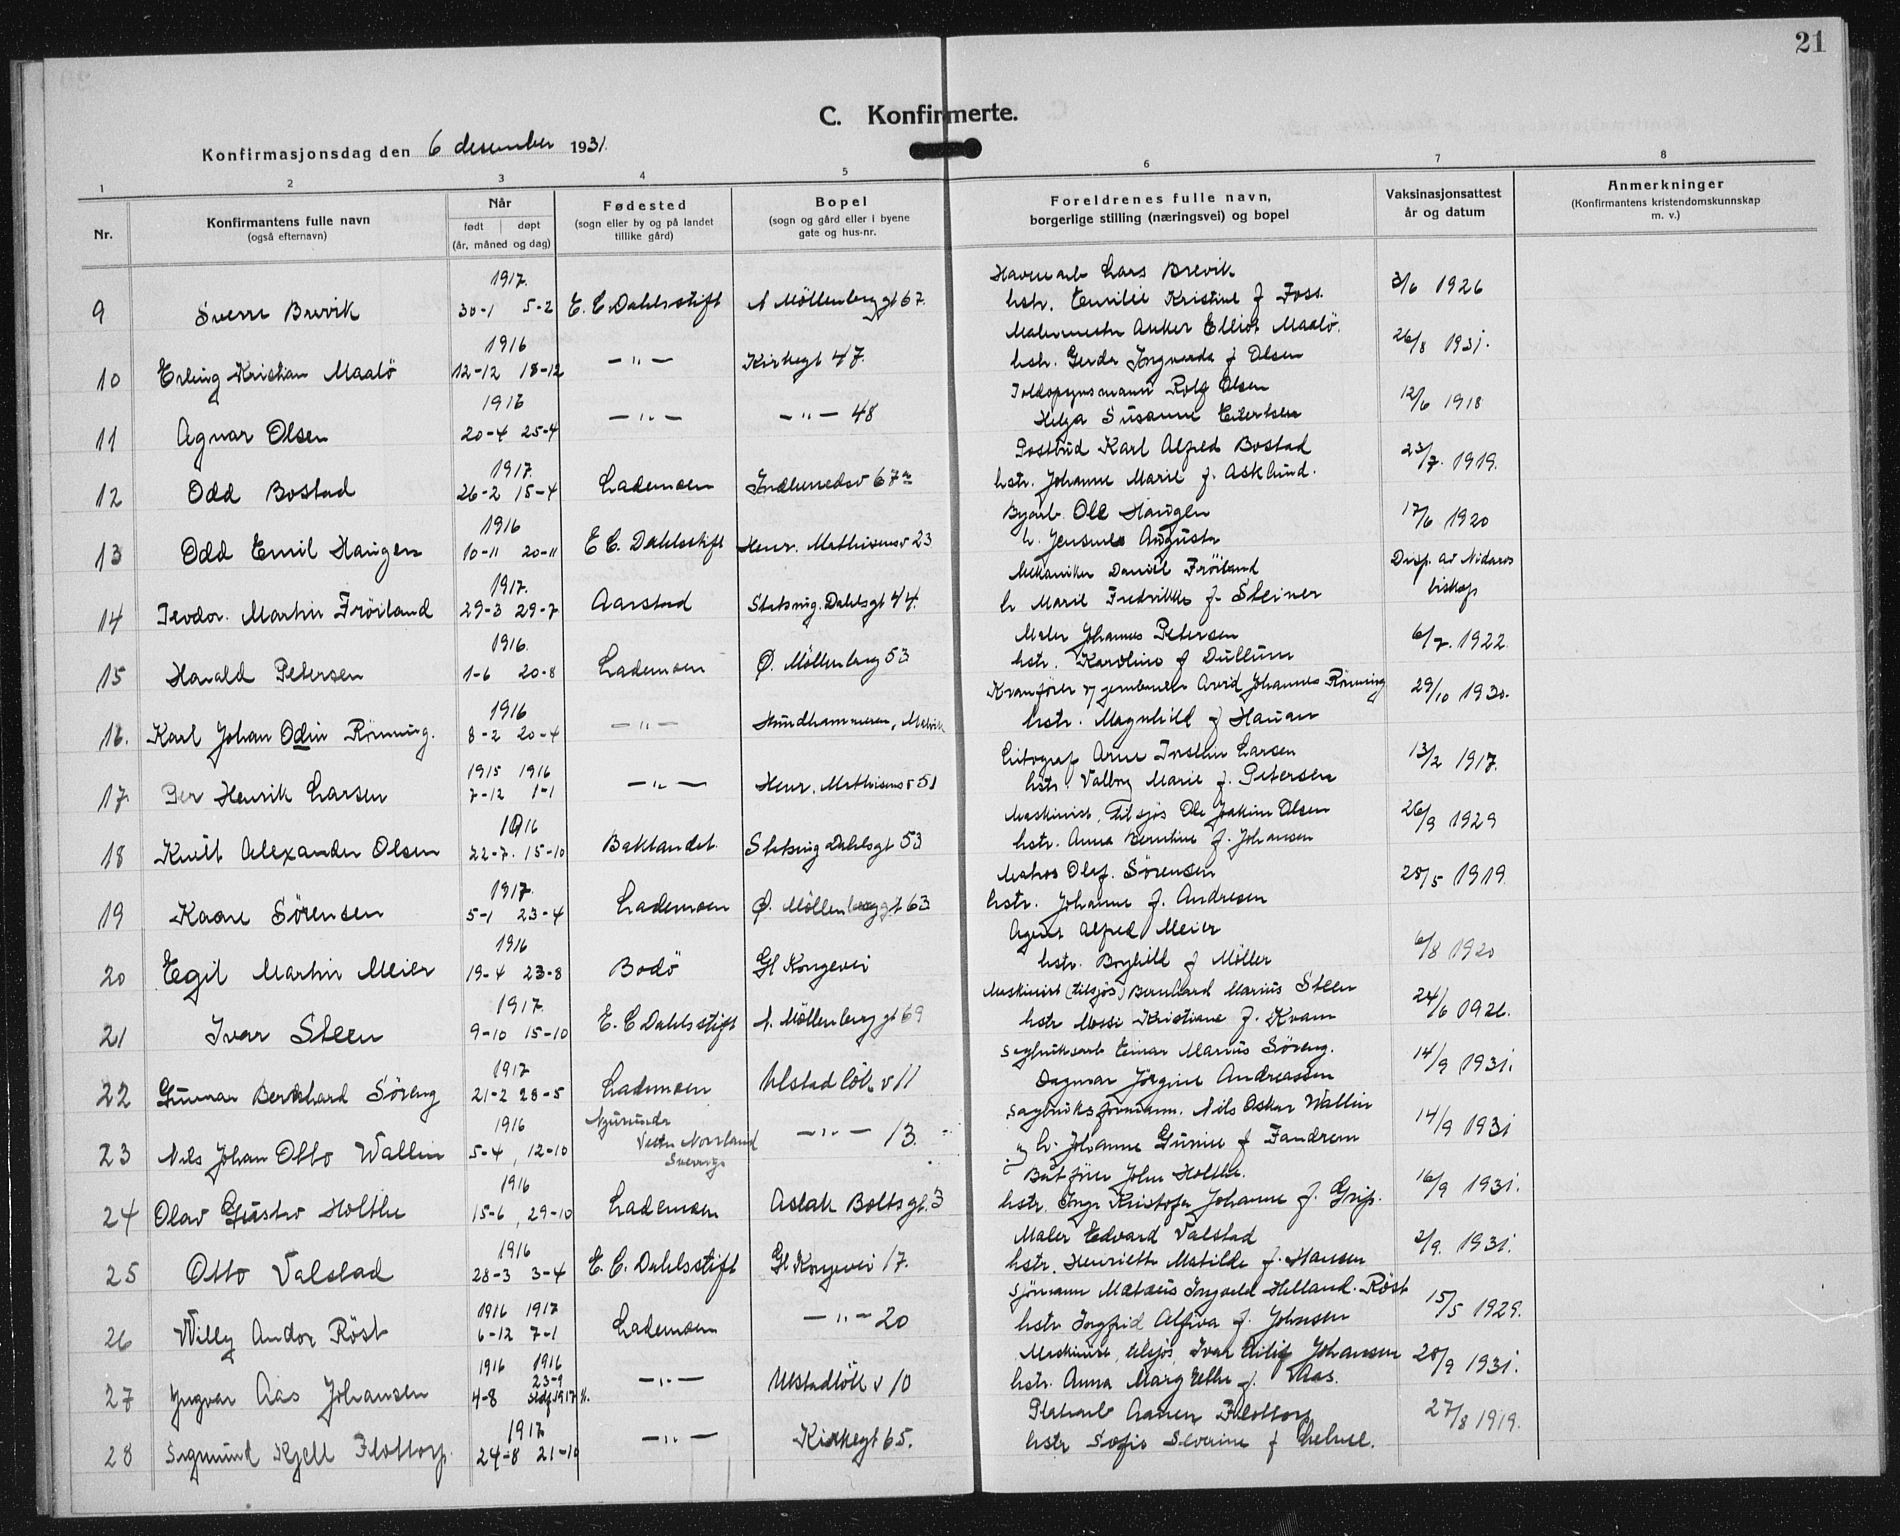 21
C. Konfirmerte.
Konfirmasjonsdag den 6 desember 1931.
1 2 3 4 5 6 7 8
Nr.
Konfirmantens fulle navn
(også efternavn)
Når
født | døpt
(år, måned og dag)
Fødested
(sogn eller by og på landet
tillike gård)
Bopel
(sogn og gård eller i byene
gate og hus-nr.
Foreldrenes fulle navn,
borgerlige stilling (næringsvei) og bopel
Vaksinasjonsattest
år og datum
Anmerkninger
(Konfirmantens kristendomskunnskap
m. v.)
1917. Havnearb Lars Brevik
9 Sverre Brevik 30-1 5-2 E. C. Dahlsstift N Möllenberg gt 67. hstr. Emilie Kristine f Foss. 3/6 1926
1916 Malermester Anker Elliot Maalö.
10 Erling Kristian Maalö 12-12 18-12 —"— Kirkegt 47. hstr. Gerda Ingvarda f Olsen 26/8 1931.
1916 Toldopsynsmann Rolf Olsen
11 Agnar Olsen 20-4 25-4 —"— —"— 48 Helga Susanne Eilertsen 12/6 1918
1917. Postbud Karl Alfred Bostad
12 Odd Bostad 26-2 15-4 Lademoen Indherredsv 67a hstr. Johanne Marie f. Asklund. 23/7. 1919.
1916 Byarb. Ole Haugen
13 Odd Emil Haugen 10-11 20-11 E C. Dahlsstift Henr. Mathisens v 23 h. Jensine Augusta 17/6 1920
1917. Mekaniker Daniel Fröiland
14 Teodor Martin Fröiland 29-3 29-7 Aarstad Statsing. Dahlsgt 44. h Marie Fredrikke f. Steiner Disp. av Nidaros biskop
1916. Maler Johannes Petersen
15 Harald Petersen 1-6 20-8 Lademoen Ø. Möllenberg 53 hstr. Karoline f Dullum 6/7. 1922.
1916 Kranfører v/ jernbanen Arvid Johannes Rönning
16. Karl Johan Odin Rönning. 8-2 20-4 —"— Hundhammeren, Malvik hstr. Magnhild f Hauan 29/10 1930.
1915 1916 Litograf Arne Larsen
17 Per Henrik Larsen 7-12 1-1 —"— Henr. Mathisens v 51 hstr. Valborg Marie f. Petersen 13/2 1917.
1916 Maskinist, tilsjös Ole Joakim Olsen
18 Knut Alexander Olsen 22-7. 15-10 Baklandet Statsing Dahlsgt 53 hstr. Anna Bernhine f. Johansen 26/9 1929
1917. Matros Olaf Sörensen
19 Kaare Sörensen 5-1 23-4 Lademoen Ø. Möllenberggt 63 hstr. Johanne f. Andresen 28/5 1919.
1916 Agent Alfred Meier
20 Egil Martin Meier 19-4 23-8 Bodö Gl Kongevei hstr. Borghild f Möller 6/8 1920
1917. Maskinist (tilsjös) Bernhard Marius Steen
21 Ivar Steen 9-10 15-10 E. C Dahlsstift N. Möllenberg gt 69 hstr Mossi Kristiane f. Kvam 24/6 1921.
1917 Sagbruksarb Einar Marius Söreng.
22 Gunnar Bernhard Söreng 21-2 28-5 Lademoen Ulstadlökv 11 Dagmar Jörgine Andreassen 14/9 1931.
1916 Njurunda Sagbruksformann. Nils Oskar Wallin
23 Nils Johan Otto Wallin 5-4, 12-10 Vester Norrland Sverrige —"— 13. h. Johanne Gunie f Fandrem 14/9 1931
1916 Båtförer John Holthe.
24 Olav Gustav Holthe 15-6, 29-10 Lademoen Aslak Boltsgt. 3 hstr. Inga Kristofa Johanne f. Grip. 16/9 1931.
1916 Maler Edvard Valstad
25 Otto Valstad 28-3 3-4 E. C. Dahlsstift Gl Kongevei 17. hstr. Henriette Matilde f. Hansen 2/9. 1931.
1916 1917 Sjömann Mateus Ingvald Helland-Röst
26 Willy Andor Röst 6-12 7-1 Lademoen —"— 20 hstr Ingrid Alfiva f. Johnsen 15/5 1929.
1916 1916 Maskinist, tilsjös, Ivar Johansen
27 Yngvar Aas Johansen 4-8 23-9 1917 —"— Ulstadlökv 10 hstr. Anna Margrethe f. Aas. 28/9 1931.
1917 Platearb Flottorp
28 Sigmund Kjell Flottorp. 24-8 21-10 —"— Kirkegt 65. hstr Sofie Severine f 27/8 1919.